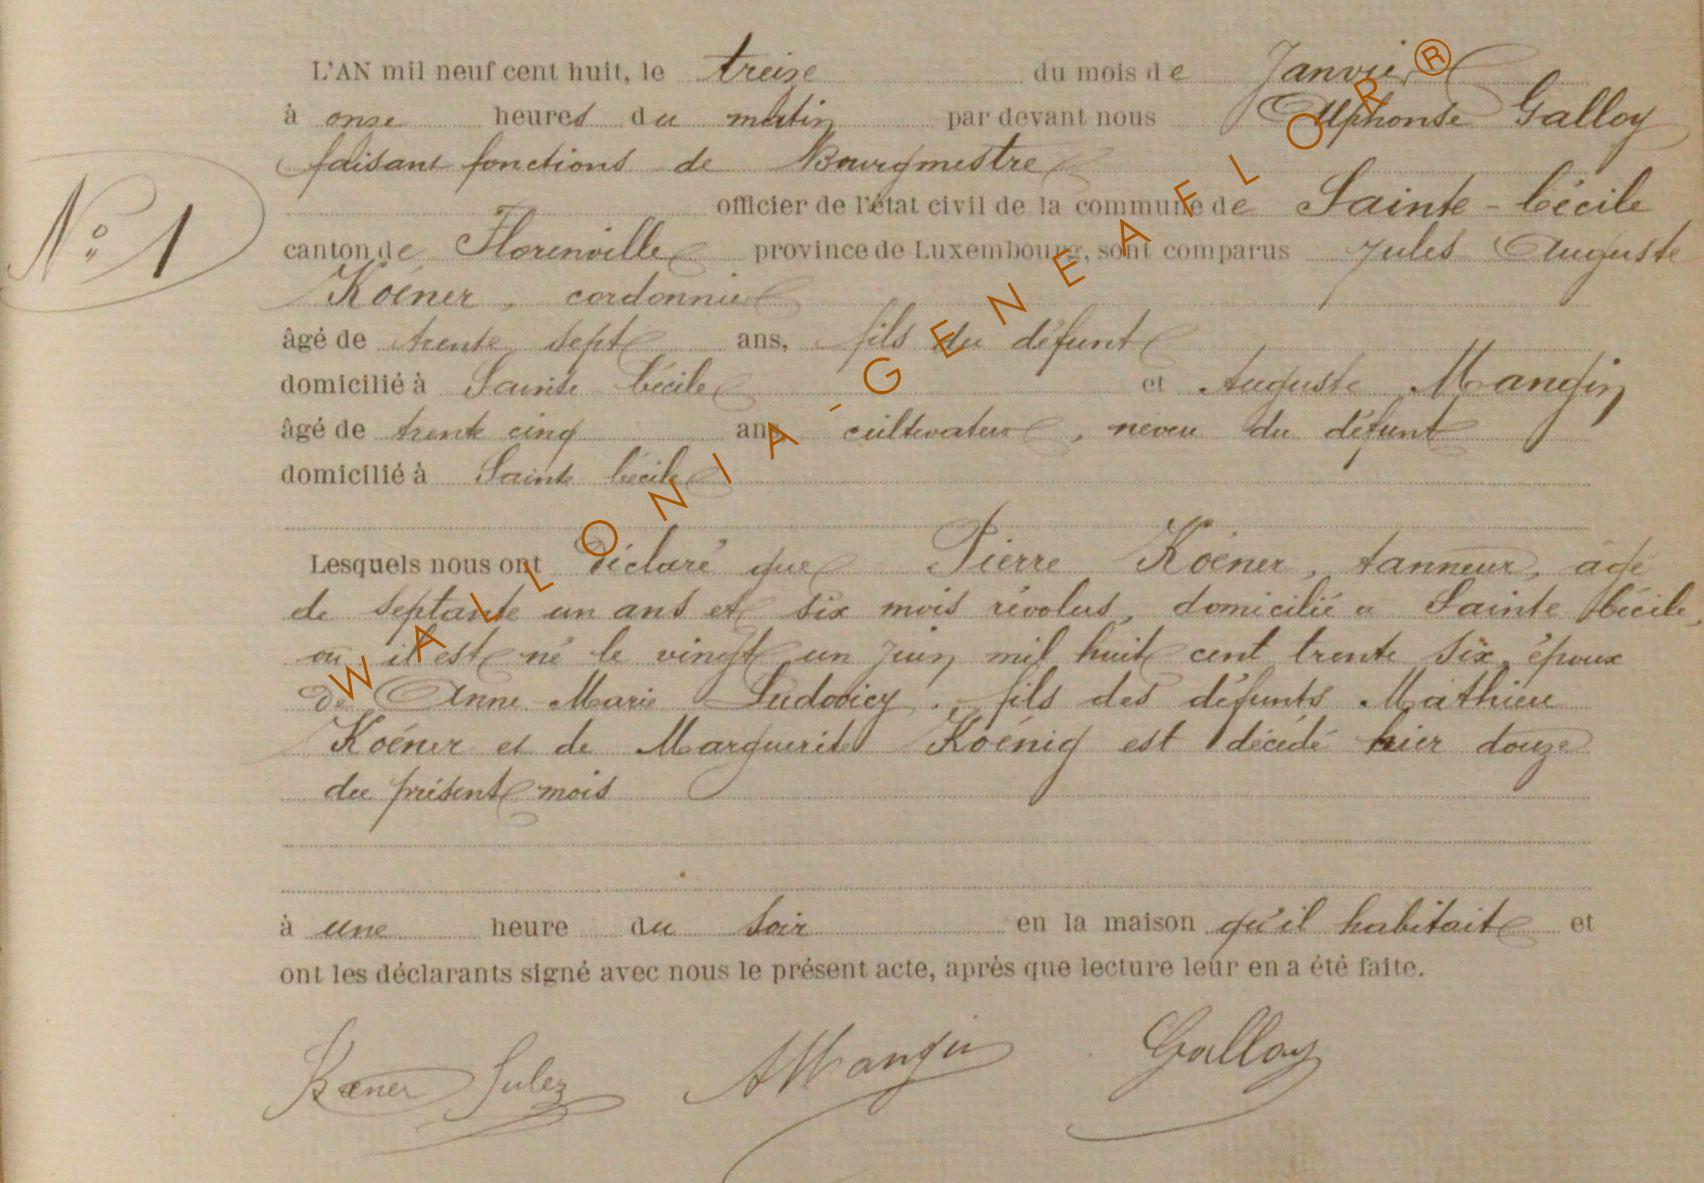 L'AN mil neuf cent huit, le treize du mois de Janvier
à onze heures du matin par devant nous Alphonse Galloy
faisant fonctions de Bourgmestre
officier de l'état civil de la commune de Sainte-Cécile
N° 1
canton de Florenville province de Luxembourg, sont comparus Jules Auguste
Koéner, cordonnier
âgé de trente sept ans, fils du défunt
domicilié à Sainte Cécile et Auguste Mangin
âgé de trente cinq ans cultivateur, neveu du défunt
domicilié à Sainte Cécile
Lesquels nous ont déclaré que Pierre Koéner, tanneur, âgé
de septante un ans et six mois révolus, domicilié à Sainte Cécile,
où il est né le vingt un juin mil huit cent trente six, époux
de Anne Marie Ludovicy, fils des défunts Mathieu
Koéner et de Marguerite Koénig est décédé hier douze
du présent mois
à une heure du soir en la maison qu'il habitait et
ont les déclarants signé avec nous le présent acte, après que lecture leur en a été faite.
Kœner Jules AMangin Galloy
WALLONIA-GENEAFLOR®